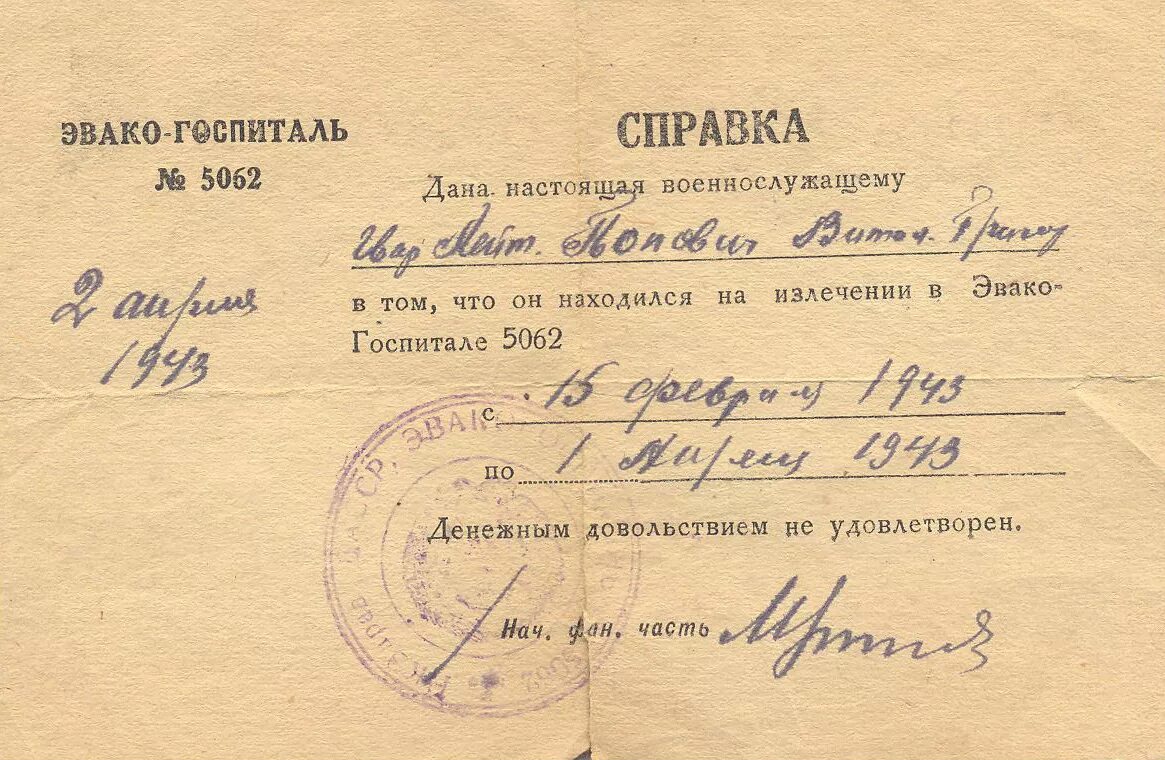 ЭВАКО-ГОСПИТАЛЬ
№ 5062
2 апреля
1943
СПРАВКА
Дана настоящая военнослужащему
Гвар Лейт. Попович Витол. Григор
в том, что он находился на излечении в Эвако-
Госпитале 5062
с 15 февраля 1943
по 1 Апреля 1943
Денежным довольствием не удовлетворен.
Нач. фин. часть
ЭВАКО
5062